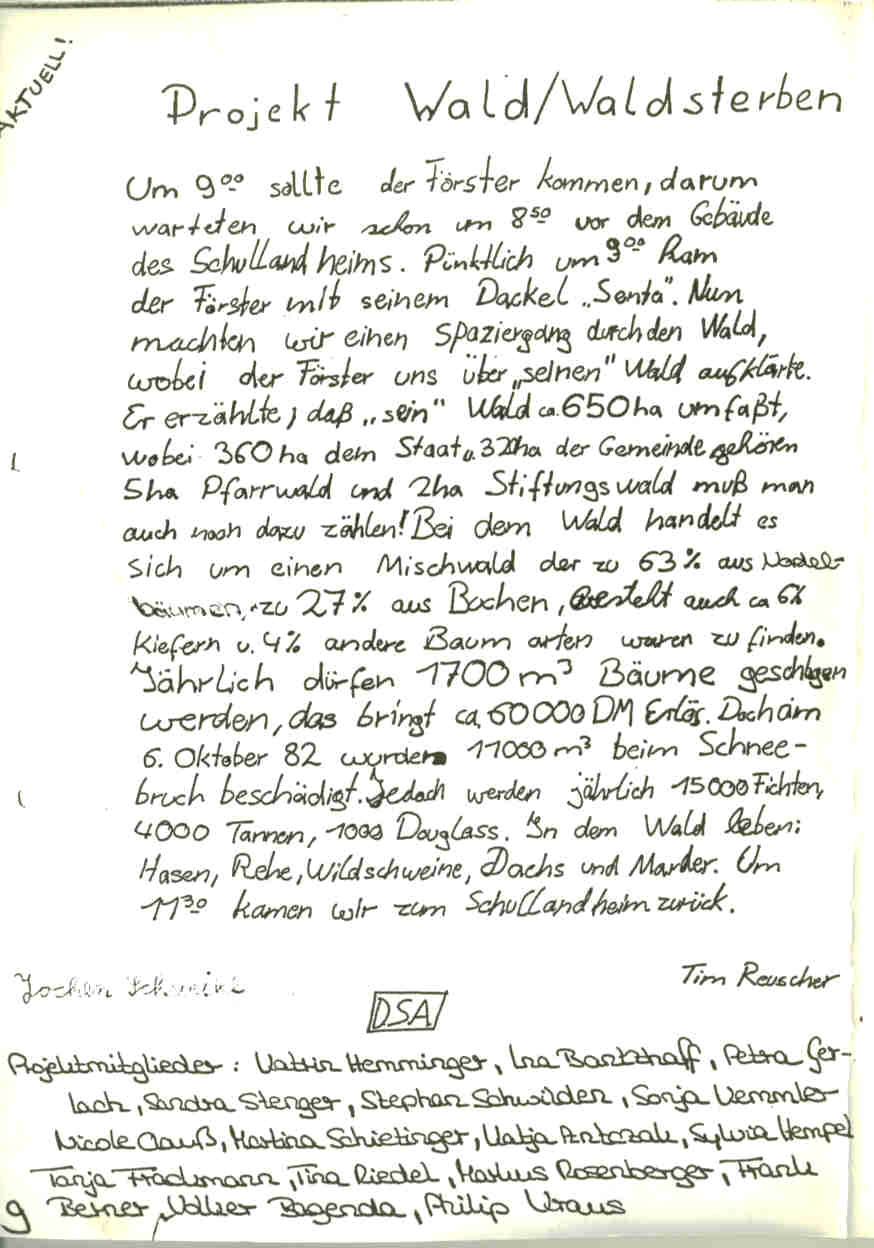 AKTUELL!
Projekt Wald/Waldsterben
Um 9⁰⁰ sollte der Förster kommen, darum
warteten wir schon um 8⁵⁰ vor dem Gebäude
des Schullandheims. Pünktlich um 9⁰⁰ kam
der Förster mit seinem Dackel „Senta". Nun
machten wir einen Spaziergang durch den Wald,
wobei der Förster uns über „seinen" Wald aufklärte.
Er erzählte, daß „sein" Wald ca. 650 ha umfaßt,
wobei 360 ha dem Staat u. ha der Gemeinde gehören
5ha Pfarrwald und 2ha Stiftungswald muß man
auch noch dazu zählen! Bei dem Wald handelt es
sich um einen Mischwald der zu 63% aus Nadel-
bäumen, zu 27% aus Buchen, auch ca 6%
Kiefern u. 4% andere Baum arten waren zu finden.
Jährlich dürfen 1700 m³ Bäume geschlagen
werden, das bringt ca. 60000 DM Erlös. Doch am
6. Oktober 82 wurden 11000 m³ beim Schnee-
bruch beschädigt. Jedoch werden jährlich 15000 Fichten,
4000 Tannen, 1000 Douglass. In dem Wald leben:
Hasen, Rehe, Wildschweine, Dachs und Marder. Um
11³⁰ kamen wir zum Schullandheim zurück.
Jochen Tim Reuscher
DSA
Projektmitglieder: Katrin Hemminger, Ina Bankhaff, Petra Ger-
lach, Sandra Stenger, Stephan Schwilden, Sonja Kemmler
Nicole Clauß, Martina Schietinger, Katja Antczak, Sylvia Hempel
Tanja Frackmann, Tina Riedel, Markus Rosenberger, Frank
Beiner, Volker Bagenda, Philip Kraus
9